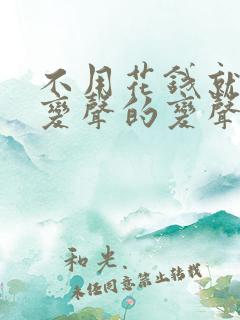 不用花錢就
變聲的變聲
和光.
未經同意禁止轉載